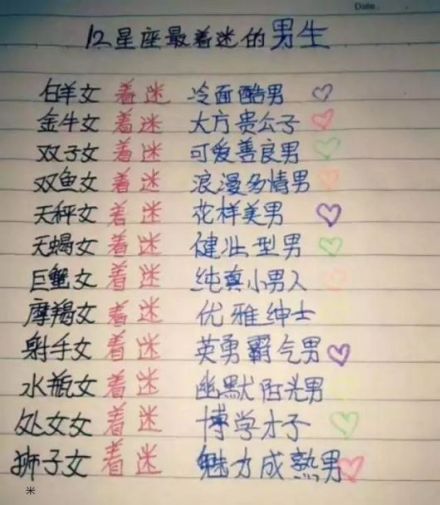 Date.
12星座最着迷的男生
白羊女 着迷 冷面酷男
金牛女 着迷 大方贵公子
双子女 着迷 可爱善良男
双鱼女 着迷 浪漫多情男
天秤女 着迷 花样美男
天蝎女 着迷 健壮型男
巨蟹女 着迷 纯真小男人
摩羯女 着迷 优雅绅士
射手女 着迷 英勇霸气男
水瓶女 着迷 幽默阳光男
处女女 着迷 博学才子
狮子女 着迷 魅力成熟男
米